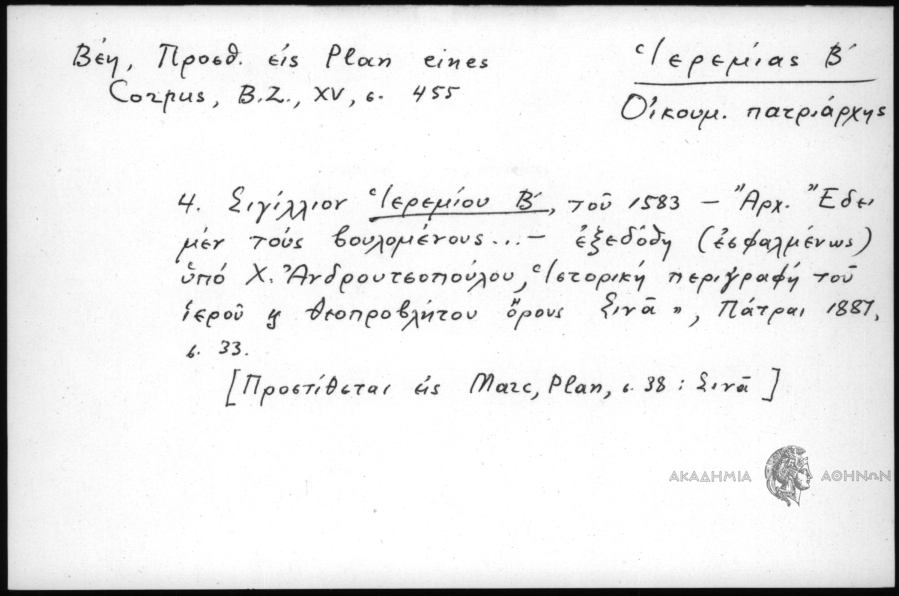 Βέη, Προσθ. εἰς Plan eines
Corpus, B.Z., XV, σ. 455
Ἱερεμίας Β΄
Οἰκουμ. πατριάρχης
4. Σιγίλλιον Ἱερεμίου Β΄, τοῦ 1583 – "Ἀρχ. "Ἔδει
μὲν τοὺς βουλομένους...– ἐξεδόθη (ἐσφαλμένως)
ὑπό Χ. Ἀνδρουτσοπούλου, Ἱστορική περιγραφή τοῦ
ἱεροῦ ϗ θεοπροβλήτου ὄρους Σινᾶ», Πάτραι 1887,
σ. 33.
[Προστίθεται εἰς Marc, Plan, σ. 38 : Σινᾶ]
ΑΚΑΔΗΜΙΑ ΑΘΗΝΩΝ